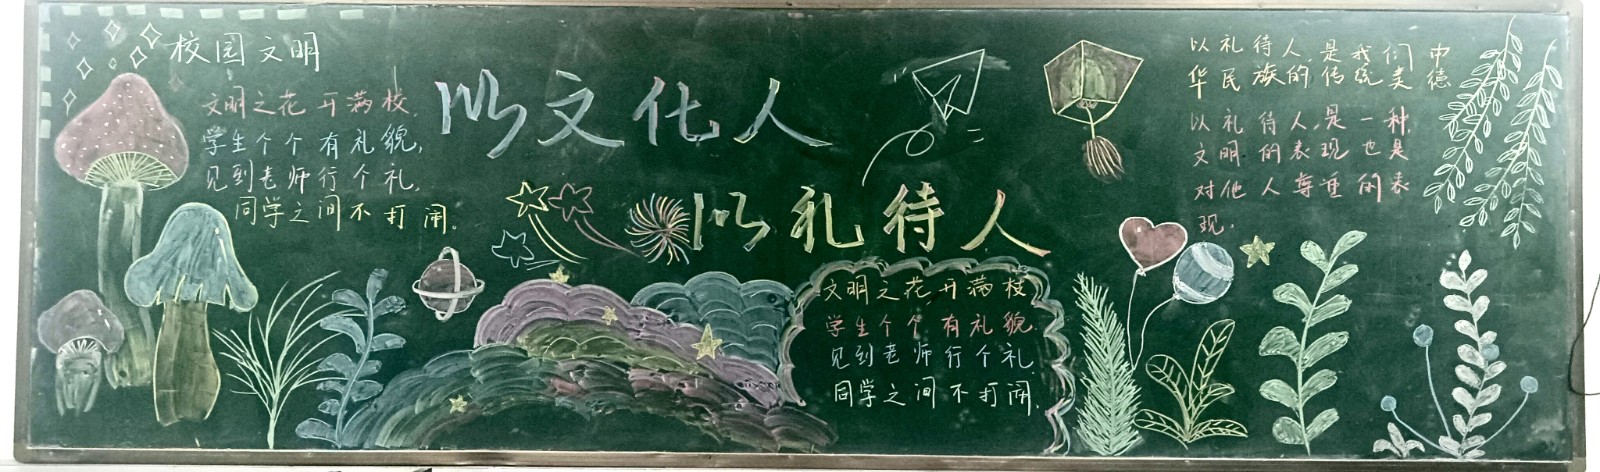 校园文明
文明之花开满校，
学生个个有礼貌，
见到老师行个礼，
同学之间不打闹。
以文化人
以礼待人
文明之花开满校
学生个个有礼貌
见到老师行个礼
同学之间不打闹。
以礼待人,是我们中
华民族的传统美德
以礼待人,是一种
文明的表现也是
对他人尊重的表
现。